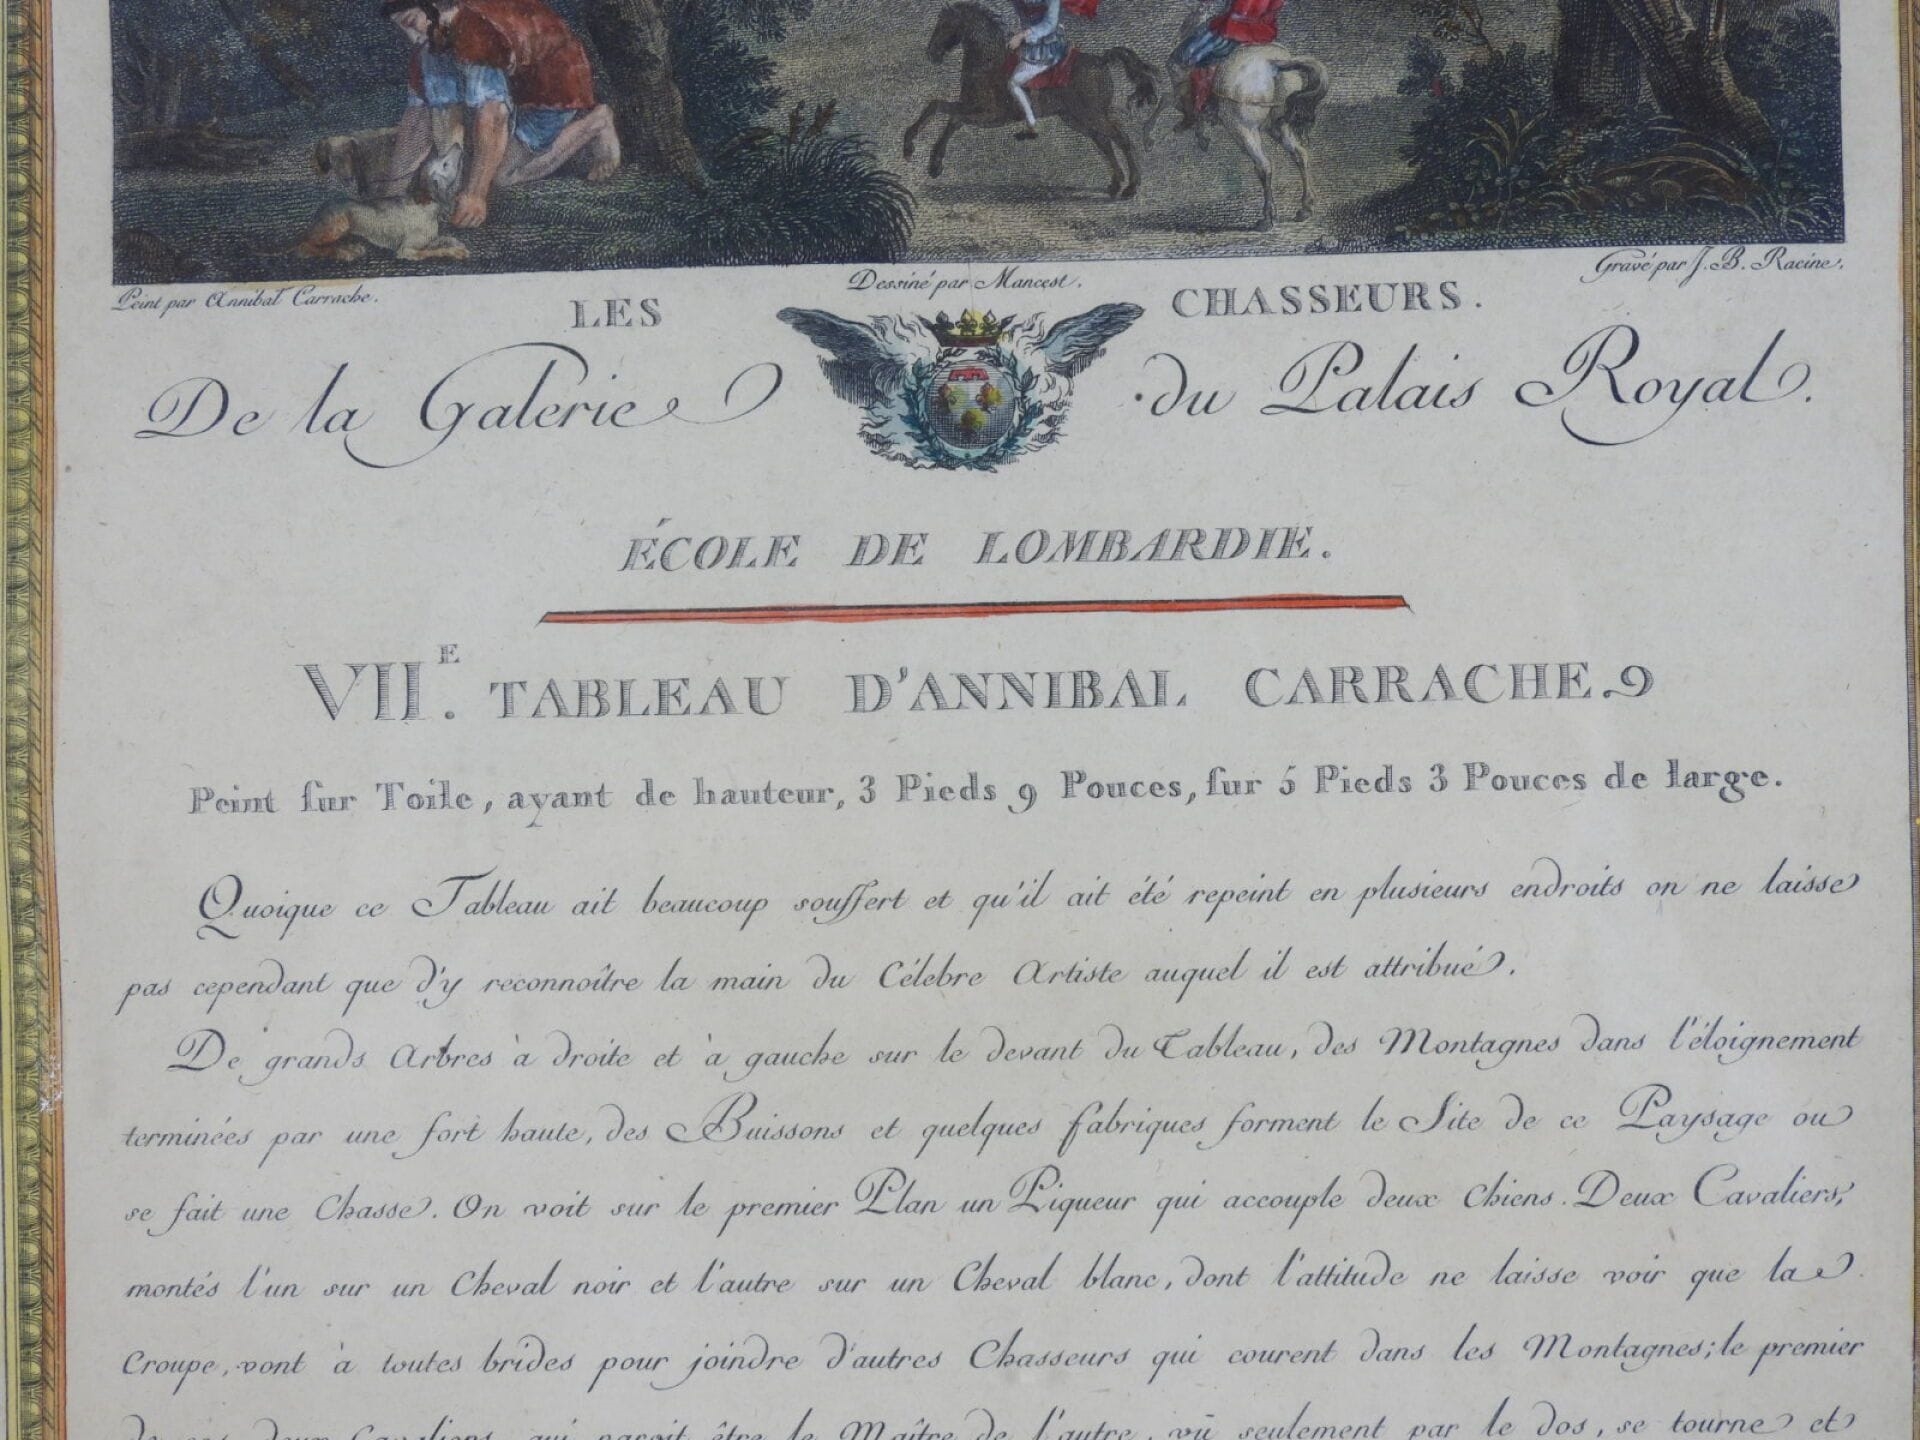 Peint par Annibal Carrache.
Dessiné par Mancest.
Gravé par J. B. Racine.
LES CHASSEURS.
De la Galerie du Palais Royal.
ÉCOLE DE LOMBARDIE.
VII.E TABLEAU D'ANNIBAL CARRACHE.
Peint sur Toile, ayant de hauteur, 3 Pieds 9 Pouces, sur 5 Pieds 3 Pouces de large.
Quoique ce Tableau ait beaucoup souffert et qu'il ait été repeint en plusieurs endroits on ne laisse
pas cependant que d'y reconnoître la main du Célebre Artiste auquel il est attribué.
De grands Arbres à droite et à gauche sur le devant du Tableau, des Montagnes dans l'éloignement
terminées par une fort haute, des Buissons et quelques fabriques forment le Site de ce Paysage ou
se fait une Chasse. On voit sur le premier Plan un Piqueur qui accouple deux Chiens. Deux Cavaliers,
montés l'un sur un Cheval noir et l'autre sur un Cheval blanc, dont l'attitude ne laisse voir que la
Croupe, vont à toutes brides pour joindre d'autres Chasseurs qui courent dans les Montagnes; le premier
de ces deux Cavaliers qui paroit être le Maître de l'autre, vû seulement par le dos, se tourne et